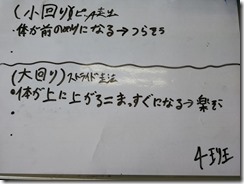 (小回り)ピッチ走法
・体が前のめりになる→つらそう
(大回り)ストライド走法
・体が上に上がる=まっすぐになる→楽そ
4班